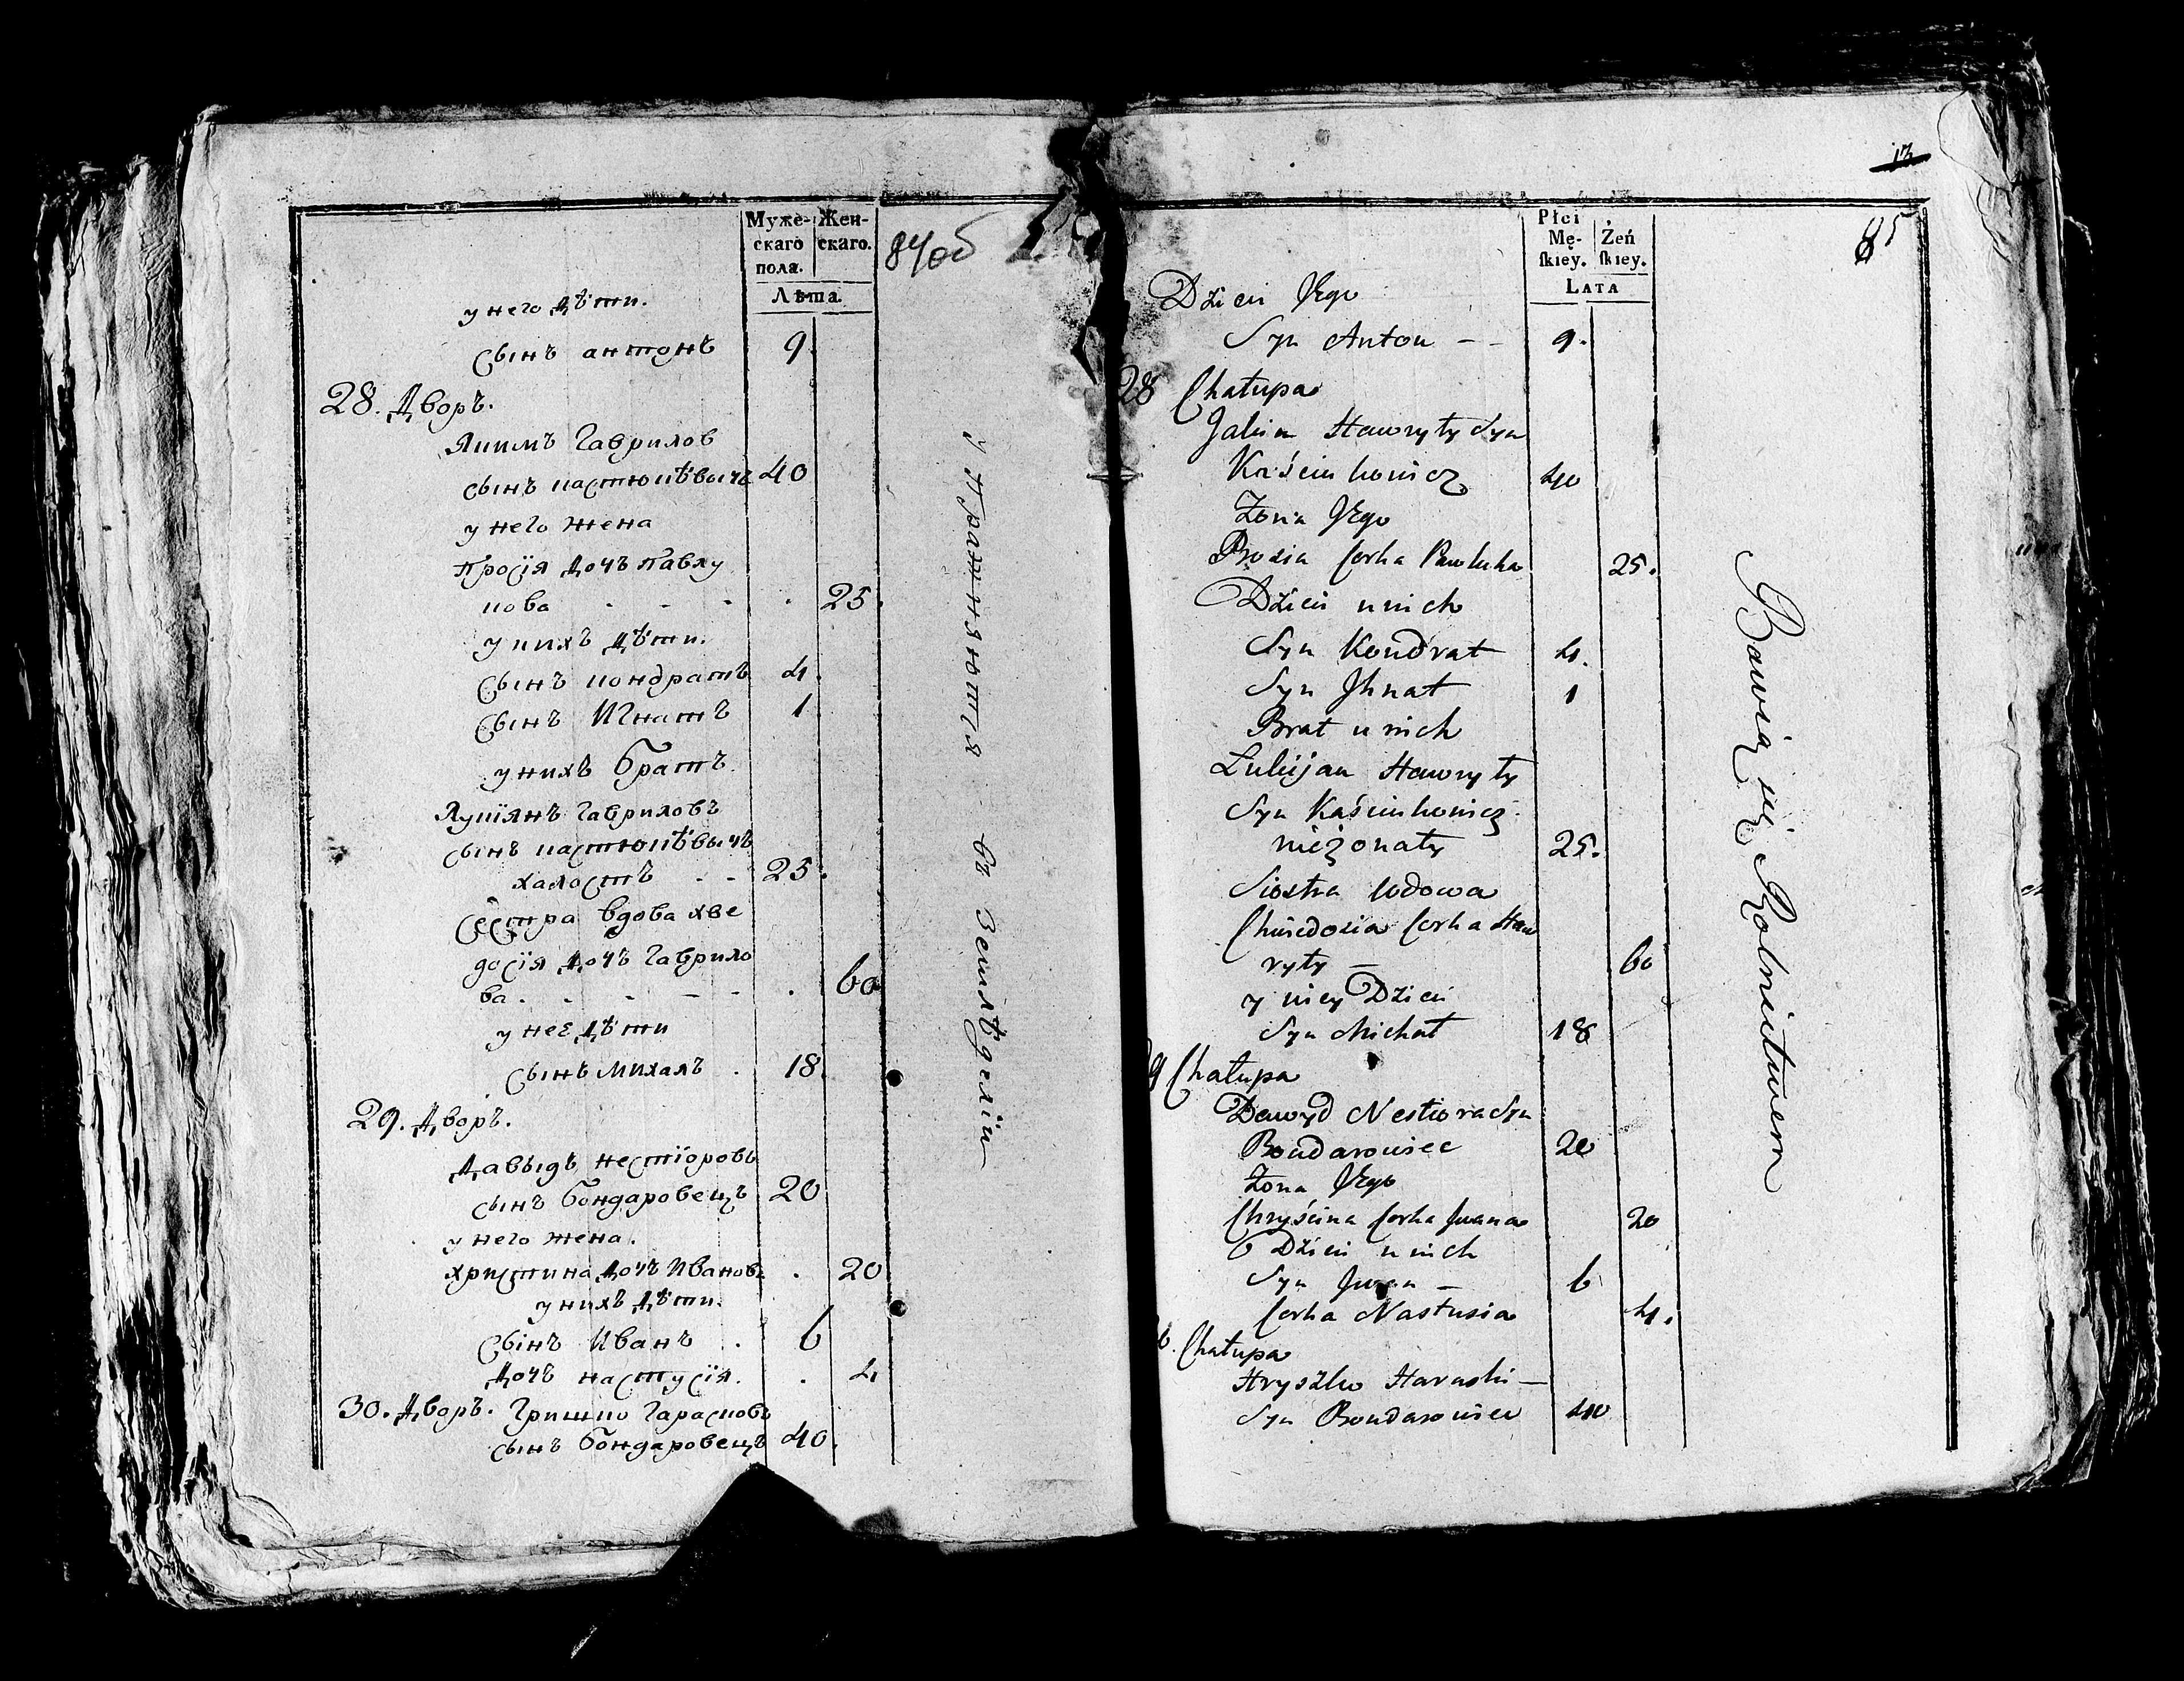 Муже-
скаго
пола.
Жен-
скаго.
Лѣта.
84об
у него дѣти.
сынъ антонъ 9.
28. дворъ.
Якимъ Гаврилов
сынъ кастюкѣвычъ 40
у него жена
Просія дочъ павлу
кова 25.
у нихъ дѣти.
сынъ кондратъ 4.
сынъ Игнатъ 1
у нихъ братъ.
Лукіянъ гавриловъ
сынъ кастюкѣвычъ
халостъ - - 25.
сестра вдова хве
досія дочъ гаврило
ва. 60
у неё дѣти
сынъ михалъ . 18.
29. дворъ.
давыдъ нестіоровъ
сынъ бондаровецъ 20
у него жена.
христина дочъ Иванова . 20
у нихъ дѣти.
сынъ Иванъ . 6
дочъ настусія. . 4
30. дворъ. Гришко Гарасковъ
сынъ бондаровецъ 40.
Упражняются въ Земледеліи
13
85
Płci
Mę-
ſkiey.
Żeń
ſkiey.
LATA
Dzieci Jego
Syn Anton - - 9.
28 Chałupa
Jakim Hawryły Syn
Kaściukowicz 40
Żona Jego
Prosia Corka Pawluka 25.
Dzieci u nich
Syn Kondrat 4.
Syn Ihnat 1
Brat u nich
Łukijan Hawryły
Syn Kaściukowicz
nieżonaty 25.
Siostra wdowa
Chwiedosia Corka Haw
ryły - 60
y niey Dzieci
Syn Michał 18
9 Chałupa
Dawyd Nestiora Syn
Bondarowiec 20
Żona Jego
Chryścina Corka Iwana 20
Dzieci u nich
Syn Iwan - 6
Corka Nastusia 4.
Chałupa
Hryszko Haraski -
Syn Bondarowiec 40
Bawią się Rolnictwem